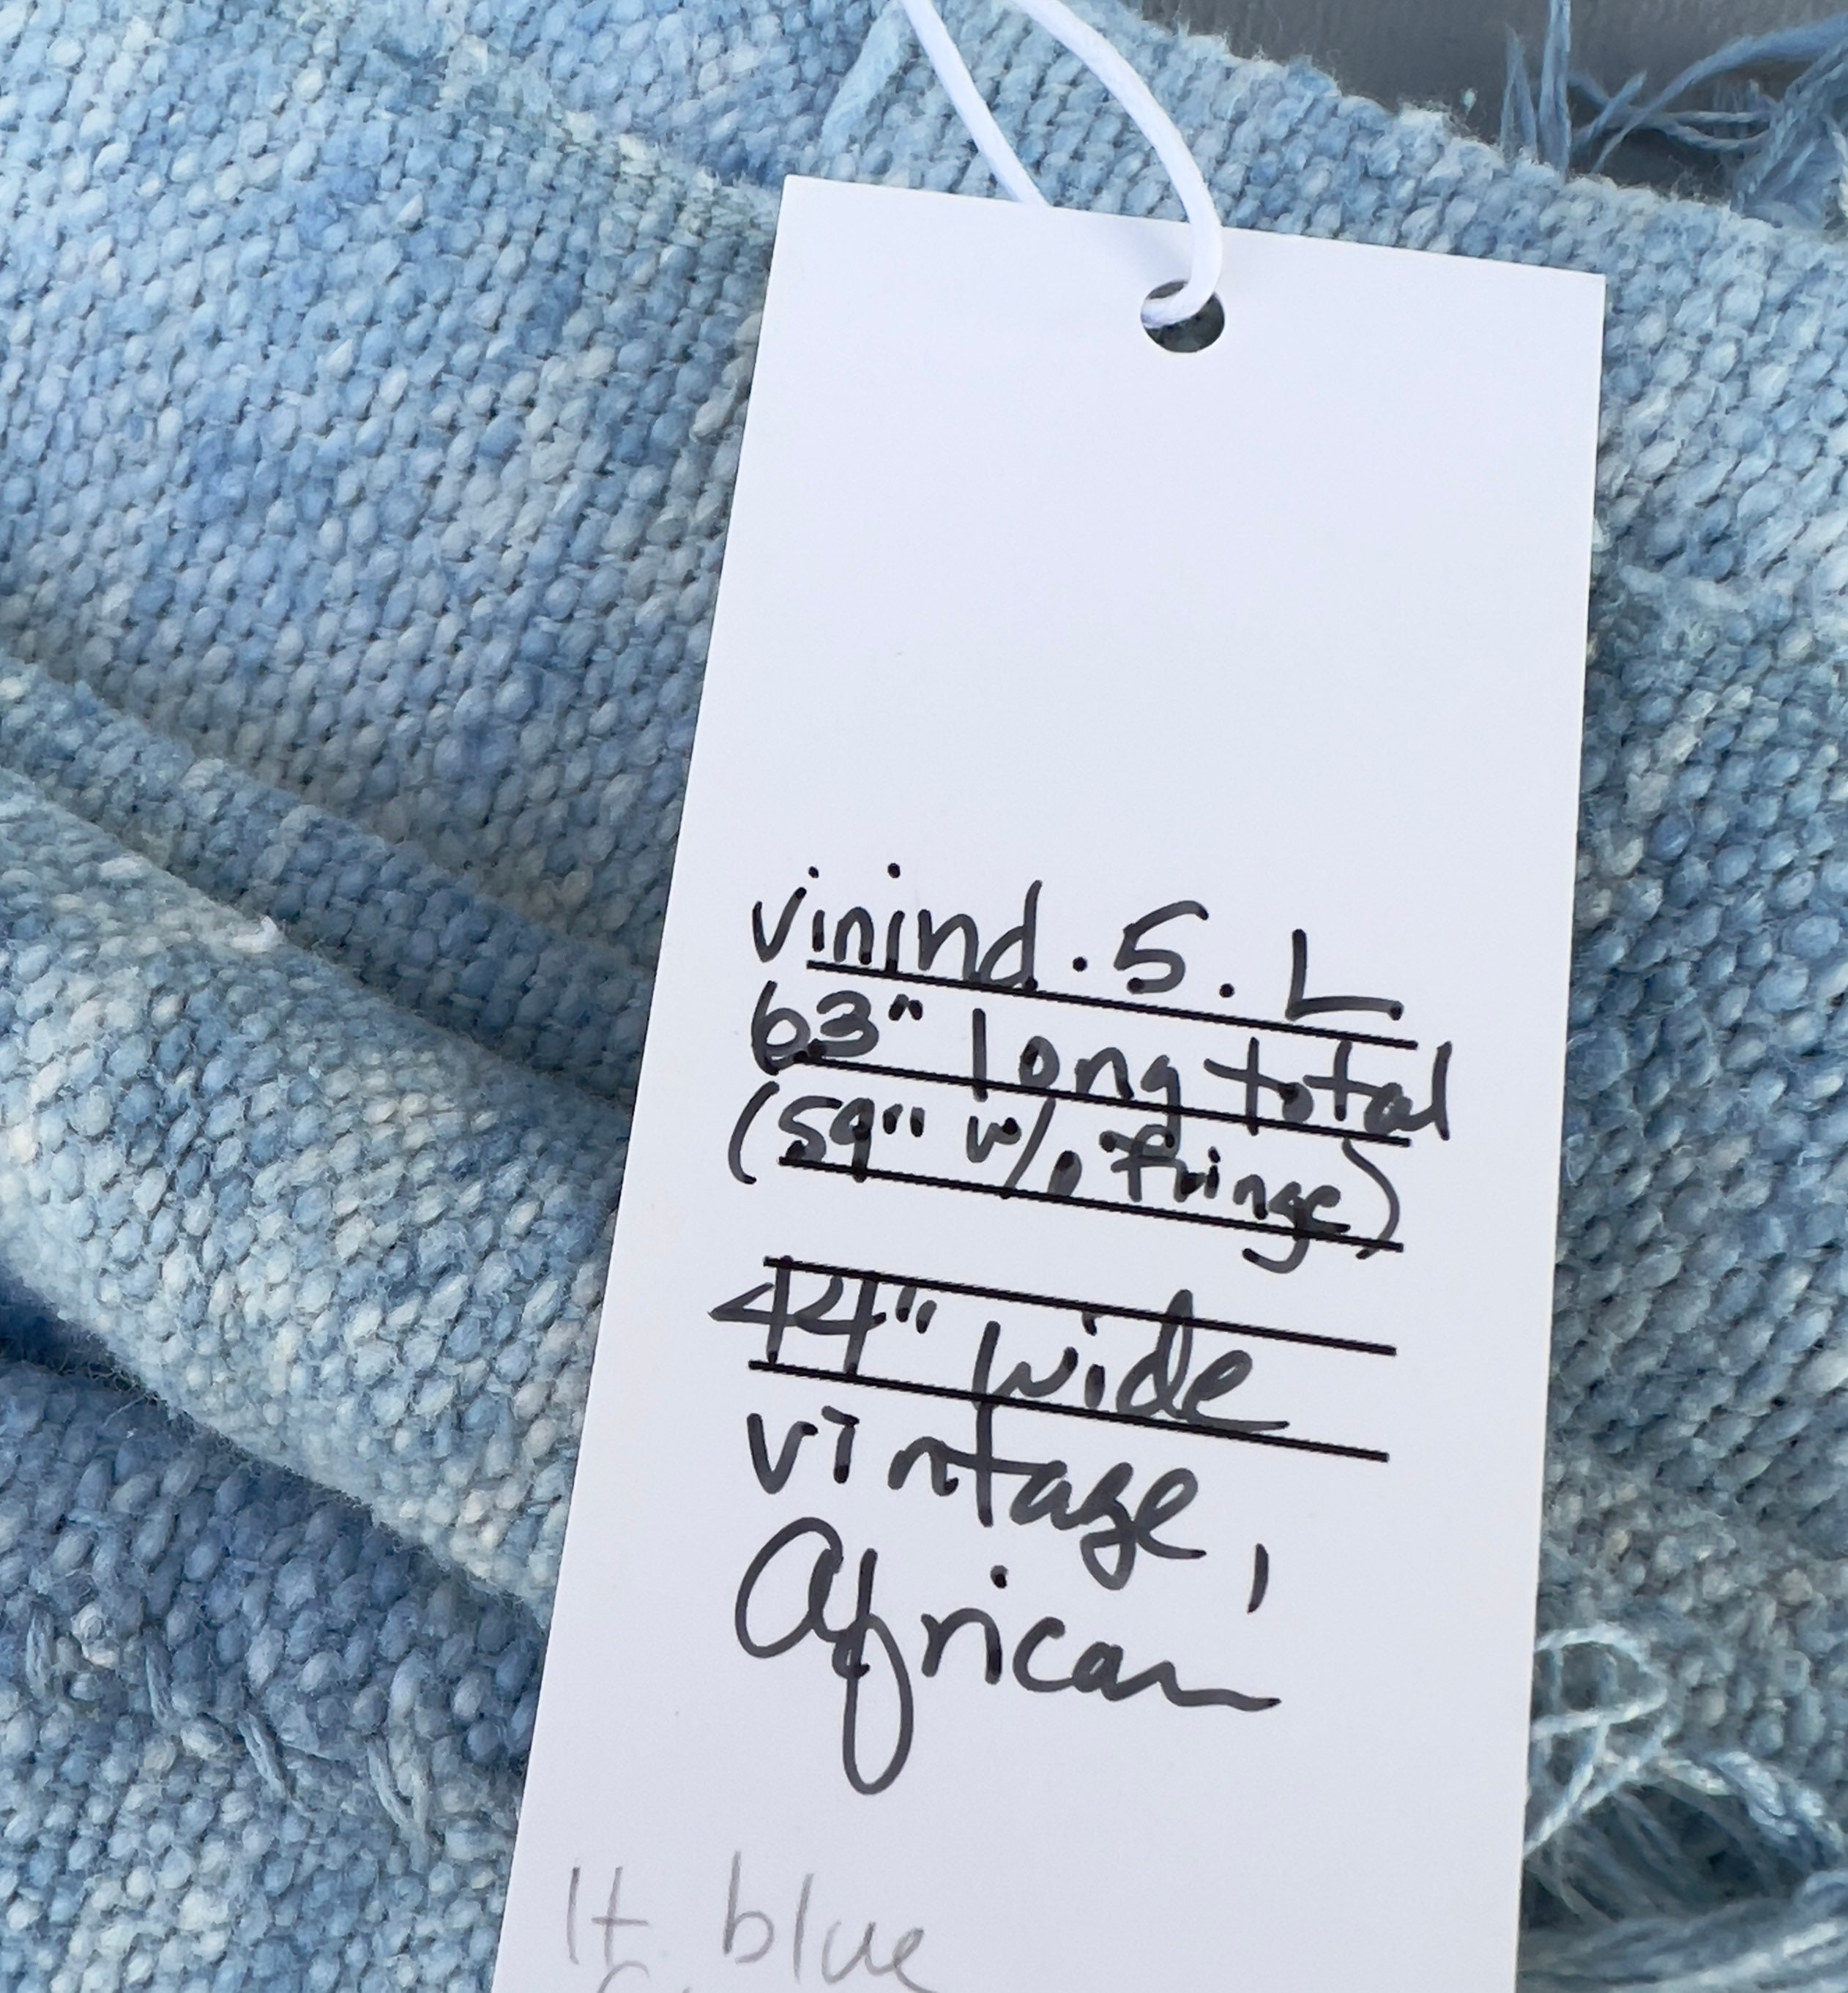 vinind.5.L
63" long total
(59" w/o fringe)
44" wide
vintage,
African
lt blue